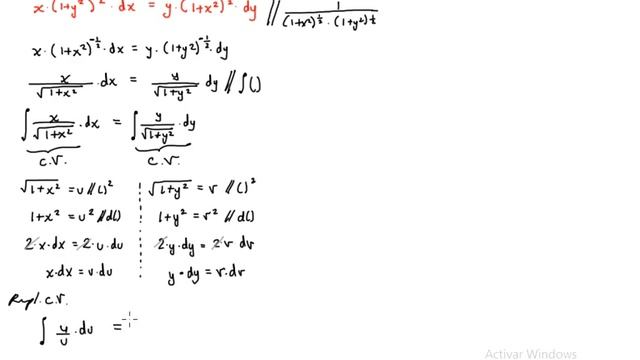 x · (1+y²)^½ · dx = y · (1+x²)^½ · dy // 1/((1+x²)^½ · (1+y²)^½)
x · (1+x²)^-½ · dx = y · (1+y²)^-½ · dy
x/√(1+x²) · dx = y/√(1+y²) dy // ∫()
∫ x/√(1+x²) · dx = ∫ y/√(1+y²) · dy
C.V. C.V.
√(1+x²) = u // ()² √(1+y²) = v // ()²
1+x² = u² // d() 1+y² = v² // d()
2·x·dx = 2·u·du 2·y·dy = 2·v dv
x·dx = u·du y·dy = v·dv
Rempl. C.V.
∫ u/u · du =
Activar Windows